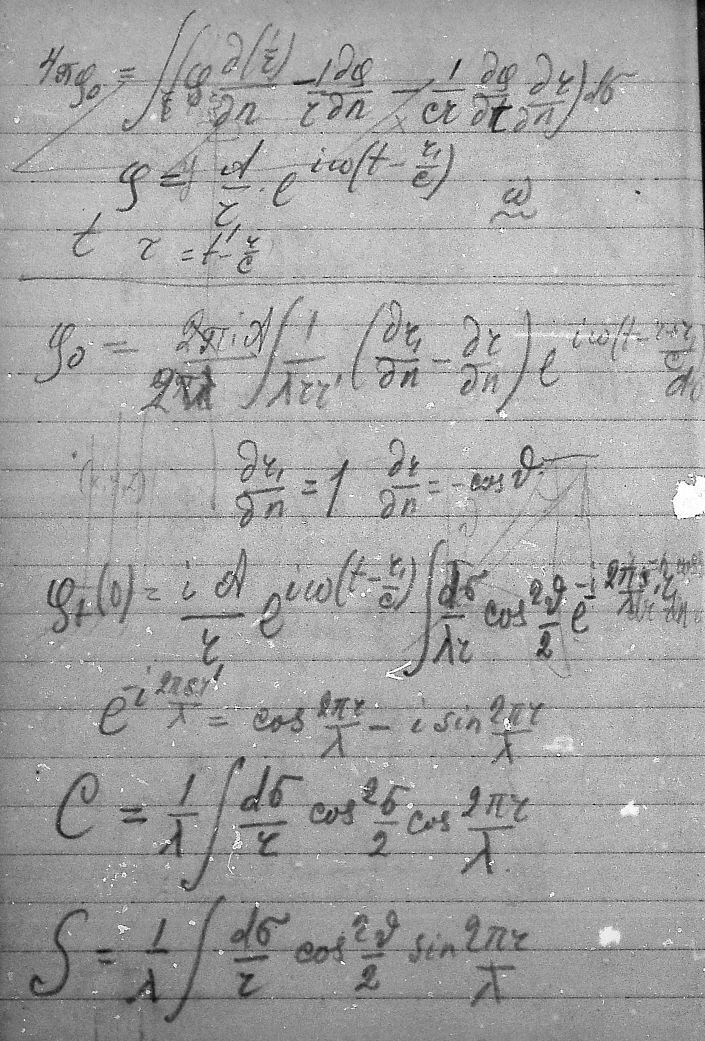 4πφ₀ = ∫(φ ∂(1/r)/∂n − 1/r ∂φ/∂n − 1/cr ∂φ/∂t ∂r/∂n) dσ
φ = A/r₁ · e^{iω(t − r₁/c)} ω
t τ = t' − r/c
φ₀ = 2πiA/2πλ ∫ 1/λrr' (∂r₁/∂n − ∂r/∂n) e^{iω(t − r+r₁/c)} dσ
∂r₁/∂n = 1 ∂r/∂n = −cos ϑ
φ_t(0) = iA/r e^{iω(t − r₁/c)} ∫ dσ/λr cos² ϑ/2 e^{−i 2π/λ r}
e^{−i 2πr/λ} = cos 2πr/λ − i sin 2πr/λ
C = 1/λ ∫ dσ/r cos² σ/2 cos 2πr/λ.
S = 1/λ ∫ dσ/r cos² ϑ/2 sin 2πr/λ